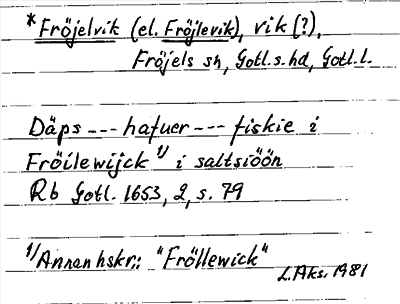 *Fröjelvik (el. Fröjlevik), vik (?),
Fröjels sn, Gotl. s. hd, Gotl. l.
Däps --- hafuer --- fiskie i
Fröilewijck 1) i saltsiöön
Rb Gotl. 1653, 2, s. 79
1) Annan hskr.: "Fröllewick"
L. Aks. 1981